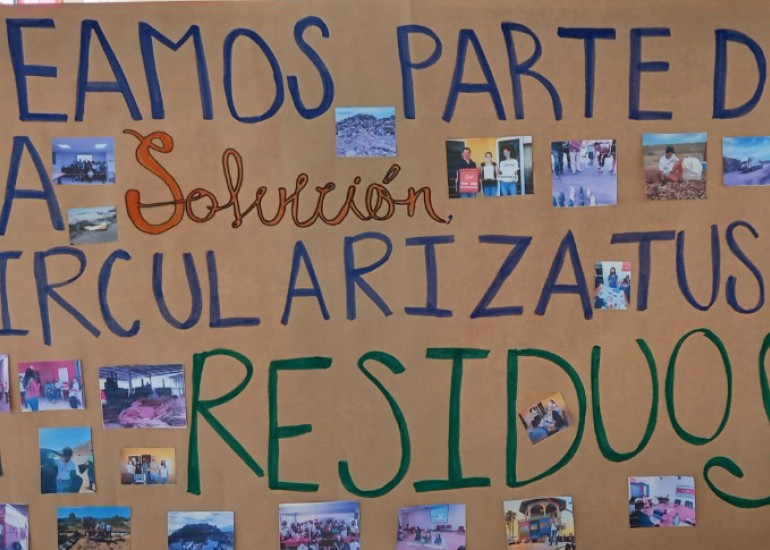 EAMOS PARTE D
A Solución,
IRCULARIZA TUS
RESIDUOS